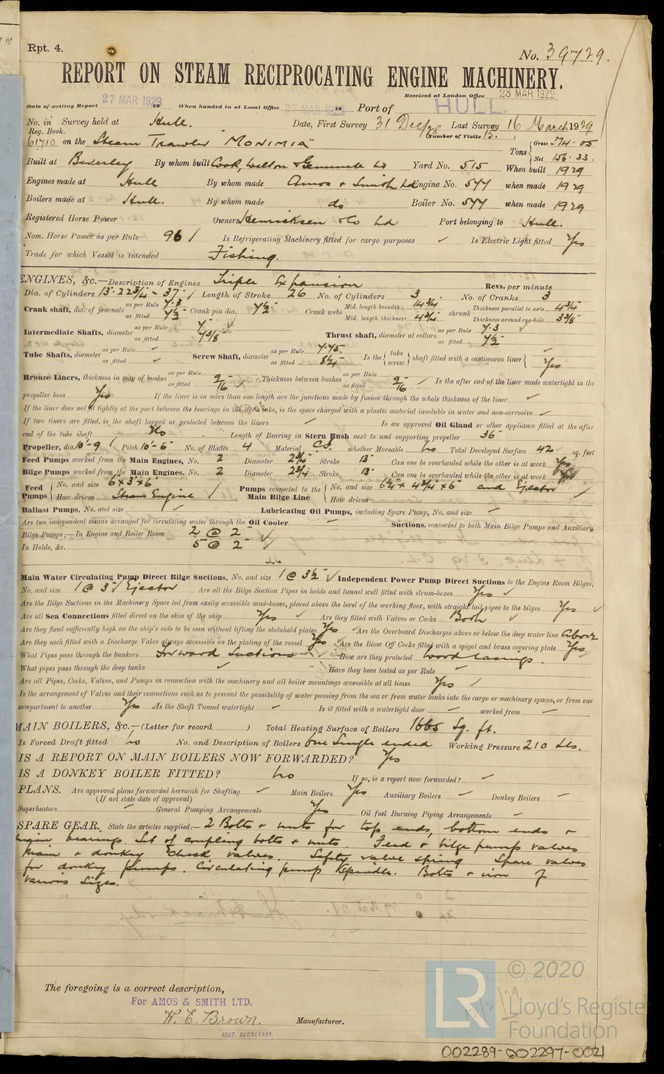 Rpt. 4.
No. 39729.
REPORT ON STEAM RECIPROCATING ENGINE MACHINERY.
Received at London Office 28 MAR 1929
Date of writing Report 27 MAR 1929 When handed in at Local Office 27 MAR 19 Port of HULL
No. in Survey held at Hull. Date, First Survey 31 Dec Last Survey 16 March 1929
Reg. Book. (Number of Visits
61710 on the Steam Trawler "MONIMIA" Tons Gross 374.05 Net 156.33.
Built at Beverley By whom built Cook, Welton & Gemmell Ld Yard No. 515 When built 1929
Engines made at Hull By whom made Amos & Smith Ld Engine No. 577 when made 1929
Boilers made at Hull. By whom made do Boiler No. 577 when made 1929
Registered Horse Power Owners Henricksen & Co Ld Port belonging to Hull.
Nom. Horse Power as per Rule 96 Is Refrigerating Machinery fitted for cargo purposes Is Electric Light fitted Yes
Trade for which Vessel is intended Fishing.
ENGINES, &c.—Description of Engines Triple Expansion Revs. per minute
Dia. of Cylinders 13-22¾-37 Length of Stroke 26 No. of Cylinders 3 No. of Cranks 3
Crank shaft, dia. of journals as per Rule 7.3 as fitted 7½ Crank pin dia. 7½ Crank webs Mid. length breadth Mid. length thickness 4¾ shrunk Thickness parallel to axis 4¾ Thickness around eye-hole
Intermediate Shafts, diameter as per Rule as fitted Thrust shaft, diameter at collars as per Rule 7.3 as fitted 7½
Tube Shafts, diameter as per Rule as fitted Screw Shaft, diameter as per Rule 7.75 as fitted 8¼ Is the { tube screw } shaft fitted with a continuous liner { Yes
Bronze Liners, thickness in way of bushes as per Rule as fitted 9/16 Thickness between bushes as per Rule as fitted 9/16 Is the after end of the liner made watertight in the
propeller boss Yes If the liner is in more than one length are the junctions made by fusion through the whole thickness of the liner
If the liner does not fit tightly at the part between the bearings in the stern tube, is the space charged with a plastic material insoluble in water and non-corrosive
If two liners are fitted, is the shaft lapped or protected between the liners Is an approved Oil Gland or other appliance fitted at the after
end of the tube shaft No Length of Bearing in Stern Bush next to and supporting propeller 36"
Propeller, dia. 10'-9 Pitch 10'-6" No. of Blades 4 Material C.I. whether Moveable No Total Developed Surface 42 sq. feet
Feed Pumps worked from the Main Engines, No. 2 Diameter 2¾" Stroke 13" Can one be overhauled while the other is at work Yes
Bilge Pumps worked from the Main Engines, No. 2 Diameter 2¾" Stroke 13" Can one be overhauled while the other is at work Yes
Feed Pumps { No. and size 6 x 3 x 6 How driven Steam Engine Pumps connected to the Main Bilge Line { No. and size and Ejector How driven
Ballast Pumps, No. and size Lubricating Oil Pumps, including Spare Pump, No. and size
Are two independent means arranged for circulating water through the Oil Cooler Suctions, connected to both Main Bilge Pumps and Auxiliary
Bilge Pumps;—In Engine and Boiler Room 2 @ 2"
In Holds, &c. 5 @ 2"
Main Water Circulating Pump Direct Bilge Suctions, No. and size 1 @ 3½ Independent Power Pump Direct Suctions to the Engine Room Bilges,
No. and size 1 @ 3" Ejector Are all the Bilge Suction Pipes in holds and tunnel well fitted with strum-boxes Yes
Are the Bilge Suctions in the Machinery Space led from easily accessible mud-boxes, placed above the level of the working floor, with straight tail pipes to the bilges Yes
Are all Sea Connections fitted direct on the skin of the ship Yes Are they fitted with Valves or Cocks Both
Are they fixed sufficiently high on the ship's side to be seen without lifting the stokehold plates Yes Are the Overboard Discharges above or below the deep water line Above
Are they each fitted with a Discharge Valve always accessible on the plating of the vessel Yes Are the Blow Off Cocks fitted with a spigot and brass covering plate Yes
What Pipes pass through the bunkers Forward Suctions How are they protected Wood Casings.
What pipes pass through the deep tanks Have they been tested as per Rule
Are all Pipes, Cocks, Valves, and Pumps in connection with the machinery and all boiler mountings accessible at all times Yes
Is the arrangement of Valves and their connections such as to prevent the possibility of water passing from the sea or from water tanks into the cargo or machinery spaces, or from one
compartment to another Yes Is the Shaft Tunnel watertight Is it fitted with a watertight door worked from
MAIN BOILERS, &c.—(Letter for record ) Total Heating Surface of Boilers 1665 Sq. ft.
Is Forced Draft fitted No No. and Description of Boilers One Single ended Working Pressure 210 Lbs.
IS A REPORT ON MAIN BOILERS NOW FORWARDED? Yes
IS A DONKEY BOILER FITTED? No If so, is a report now forwarded?
PLANS. Are approved plans forwarded herewith for Shafting Main Boilers Yes Auxiliary Boilers Donkey Boilers
(If not state date of approval)
Superheaters General Pumping Arrangements Yes Oil fuel Burning Piping Arrangements
SPARE GEAR. State the articles supplied:— 2 Bolts & nuts for top ends, bottom ends &
main bearings. Set of coupling bolts & nuts. Feed & bilge pump valves
Main & donkey check valves. Safety valve spring. Spare valves
for donkey pumps. Circulating pump Spindle. Bolts & iron of
various sizes.
The foregoing is a correct description,
For AMOS & SMITH LTD.
W. E. Brown. Manufacturer.
ASST. SECRETARY.
LR © 2020
Lloyd's Register
Foundation
002289-002297-0021